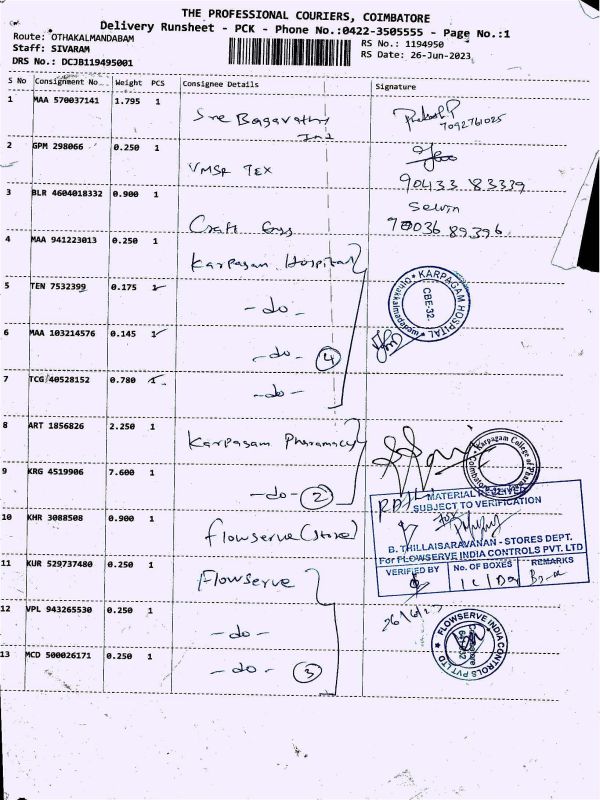 THE PROFESSIONAL COURIERS, COIMBATORE
Delivery Runsheet - PCK - Phone No.:0422-3505555 - Page No.:1
Route: OTHAKALMANDABAM
RS No.: 1194950
Staff: SIVARAM
RS Date: 26-Jun-2023
DRS No.: DCJB119495001
S No Consignment No Weight PCS Consignee Details Signature
1 MAA 570037141 1.795 1 Sree Bagavathy
7092761025
2 GPM 298066 0.250 1 VMSR TEX
90433 83339
3 BLR 4604018332 0.900 1 Selvin
4 MAA 941223013 0.250 1 Karpagam Hospital
5 TEN 7532399 0.175 1 -do-
KARPAGAM HOSPITAL
CBE-32.
Othakkalmadapam
6 MAA 103214576 0.145 1 -do- 4
7 TCG 40528152 0.780 1 -do-
8 ART 1856826 2.250 1 Karpagam Pharamacy
Karpagam College of Pharmacy
9 KRG 4519906 7.600 1 -do- 2
MATERIAL RECEIVED
SUBJECT TO VERIFICATION
10 KHR 3088508 0.900 1 flowserve (store)
B. THILLAISARAVANAN - STORES DEPT.
For FLOWSERVE INDIA CONTROLS PVT. LTD
11 KUR 529737480 0.250 1 Flowserve
VERIFIED BY No. OF BOXES REMARKS
12 VPL 943265530 0.250 1 -do-
26/6/23
FLOWSERVE INDIA CONTROLS PVT LTD
13 MCD 500026171 0.250 1 -do- 3